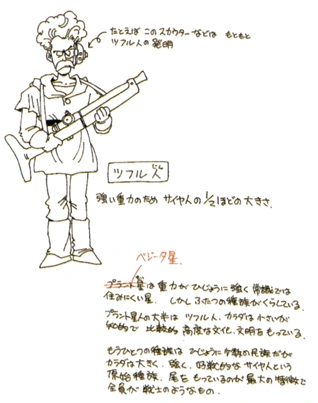 たとえば このスカウター などは もともと
ツフル人の発明
ツフル人
じん
強い重力のため サイヤ人の1/2ほどの大きさ.
ベジータ星.
プラント星は 重力が ひじょうに強く 常識では
住みにくい星. しかし ふたつの種族がくらしている.
プラント星人の大半は ツフル人. カラダは小さいが
知的で 比較的 高度な文化、文明をもっている.
もうひとつの種族は ひじょうに少数の民族だが
カラダは大きく、強く、好戦的な サイヤ人という
原始種族. 尾を もっているのが 最大の特徴で
全員が 戦士のようなもの.